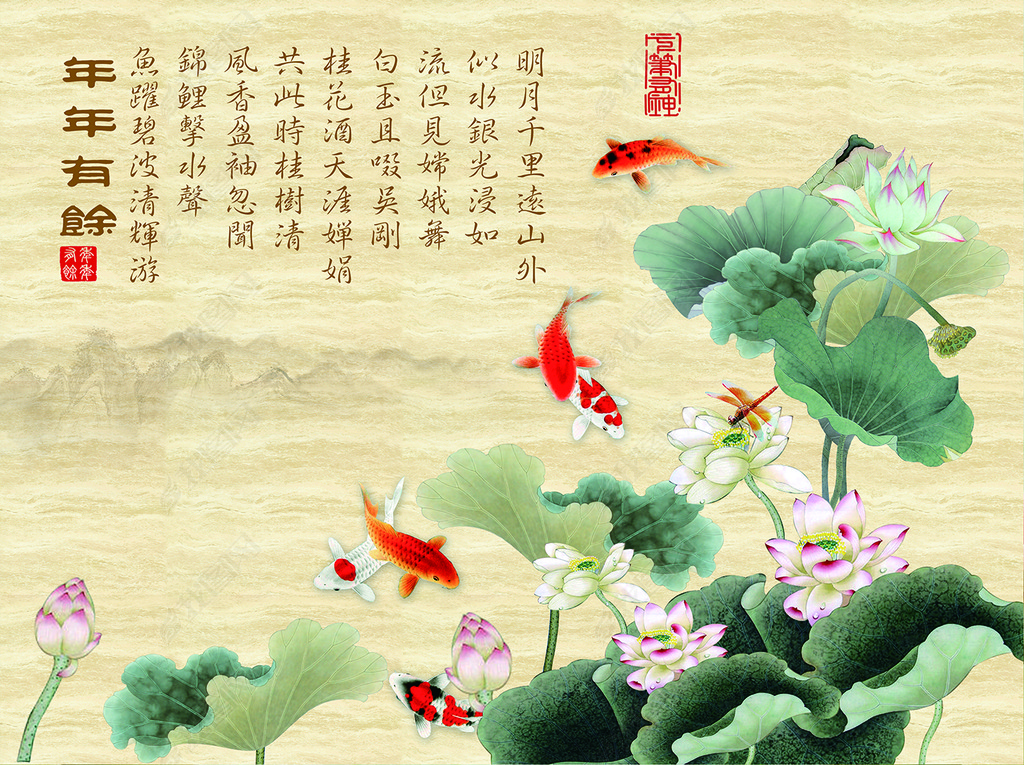 明月千里遠山外
似水銀光浸如
流但見嫦娥舞
白玉且啜吳剛
桂花酒天涯嬋娟
共此時桂樹清
風香盈袖忽聞
錦鯉擊水聲
魚躍碧波清輝游
年年有餘
年年
有餘